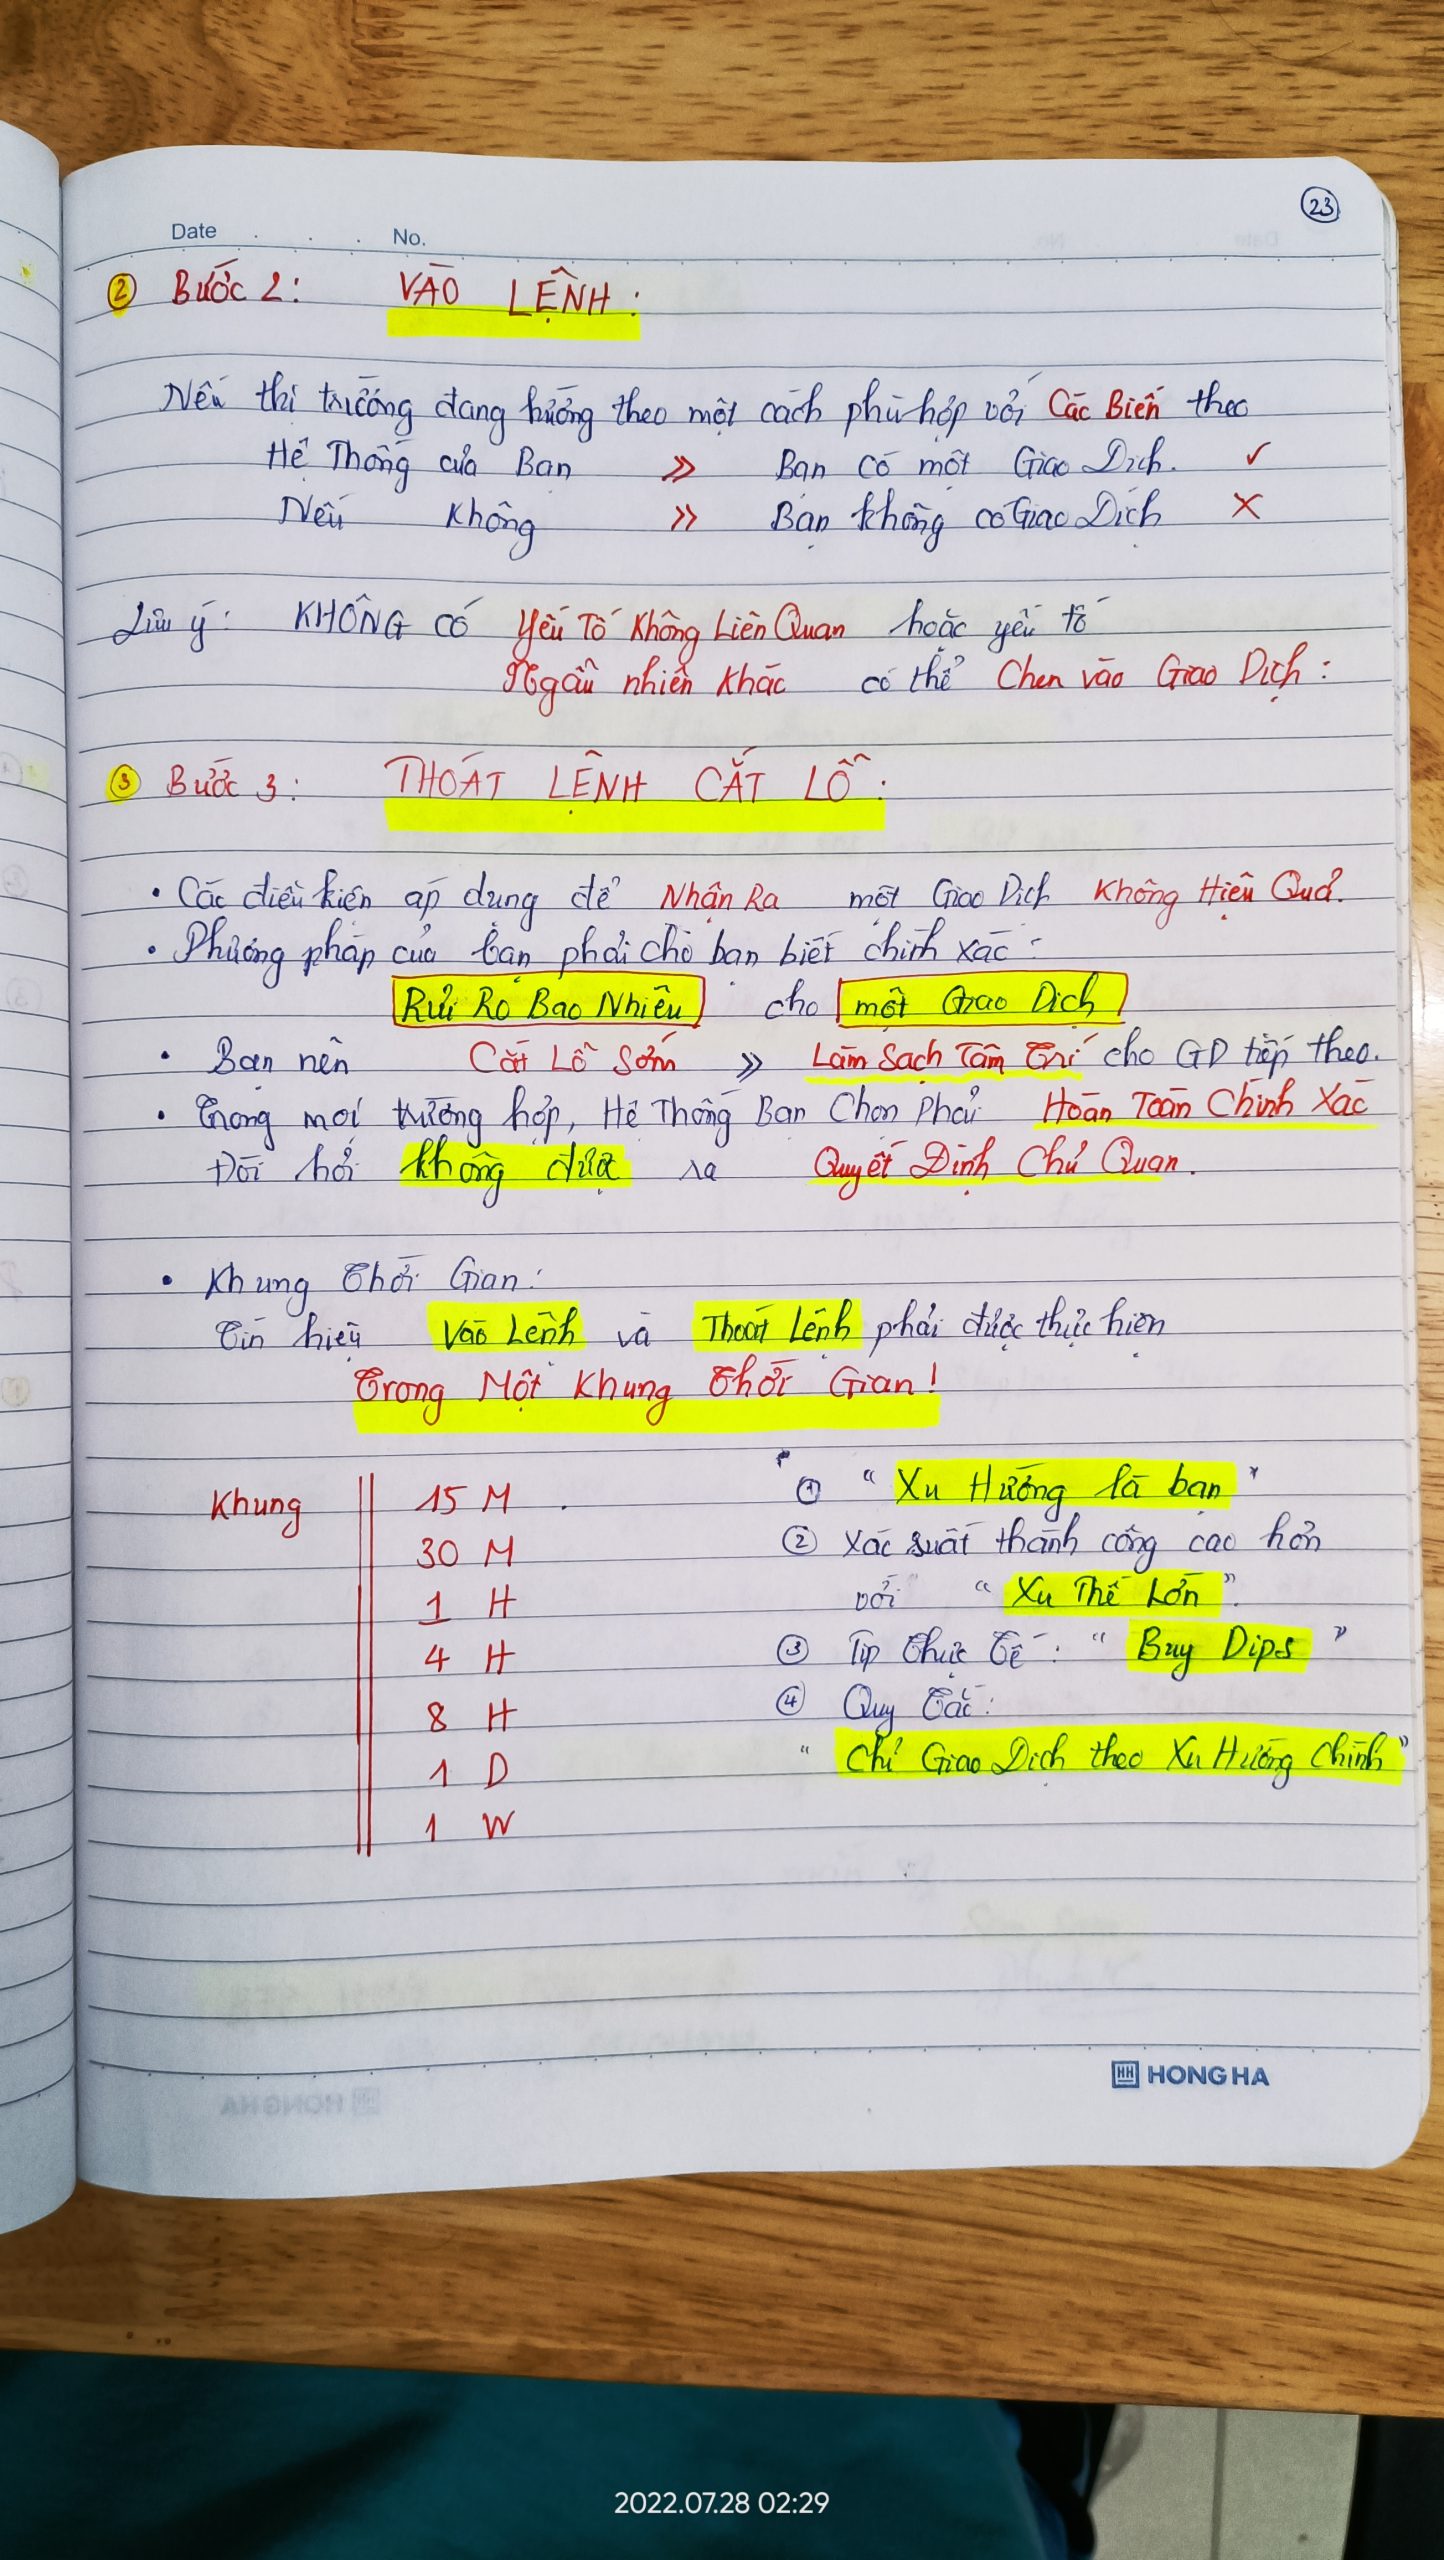 23
Date No.
2 Bước 2: VÀO LỆNH:
Nếu thị trường đang hướng theo một cách phù hợp với Các Biến theo
Hệ Thống của Bạn >> Bạn có một Giao Dịch. ✓
Nếu Không >> Bạn không có Giao Dịch X
Lưu ý: KHÔNG CÓ Yếu Tố Không Liên Quan hoặc yếu tố
Ngẫu nhiên Khác có thể Chen vào Giao Dịch:
3 Bước 3: THOÁT LỆNH CẮT LỖ:
• Các điều kiện áp dụng để Nhận Ra một Giao Dịch Không Hiệu Quả.
• Phương pháp của bạn phải cho bạn biết chính xác:
Rủi Ro Bao Nhiêu cho một Giao Dịch
• Bạn nên Cắt Lỗ Sớm >> Làm Sạch Tâm Trí cho GD tiếp theo.
• Trong mọi trường hợp, Hệ Thống Bạn Chọn Phải Hoàn Toàn Chính Xác
Đòi hỏi không được ra Quyết Định Chủ Quan.
• Khung Thời Gian:
Tín hiệu Vào Lệnh và Thoát Lệnh phải được thực hiện
Trong Một Khung Thời Gian!
Khung 15 M
30 M
1 H
4 H
8 H
1 D
1 W
1 "Xu Hướng là bạn"
2 Xác suất thành công cao hơn
với "Xu Thế Lớn".
3 Tip Thực Tế: "Buy Dips"
4 Quy Tắc:
"Chỉ Giao Dịch theo Xu Hướng Chính"
HH HONG HA
2022.07.28 02:29